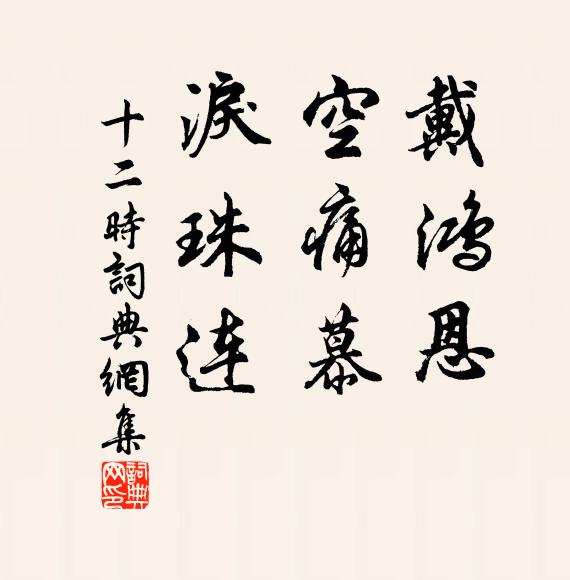 戴鸿恩
空痛慕
淚珠连
十二時詞典網集
詞典网印